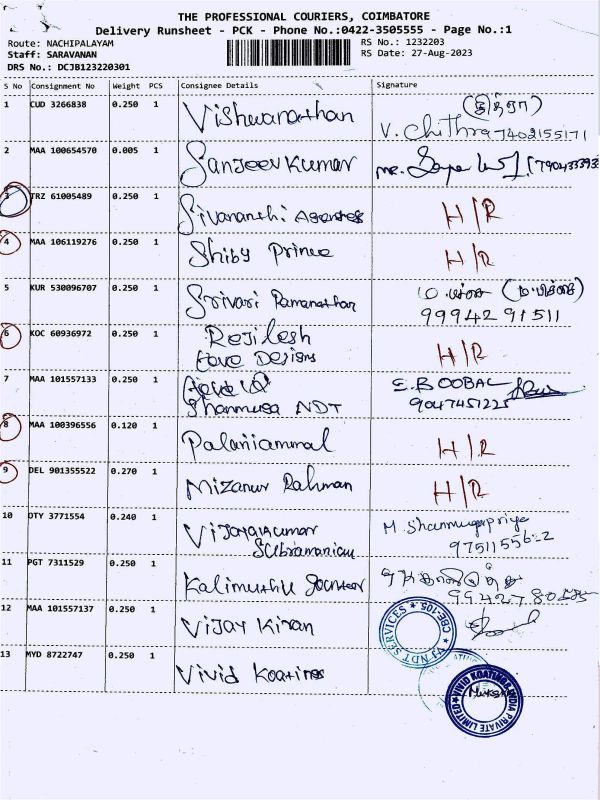 THE PROFESSIONAL COURIERS, COIMBATORE
Delivery Runsheet - PCK - Phone No.:0422-3505555 - Page No.:1
Route: NACHIPALAYAM
Staff: SARAVANAN
DRS No.: DCJB123220301
RS No.: 1232203
RS Date: 27-Aug-2023
S No Consignment No Weight PCS Consignee Details Signature
1 CUD 3266838 0.250 1 Vishwanathan (சித்ரா)
V. Chithra 7402155171
2 MAA 100654570 0.005 1 Sanjeev Kumar
3 TRZ 61005489 0.250 1 Sivananthi Agencies H/R
4 MAA 106119276 0.250 1 Shiby Prince H/R
5 KUR 530096707 0.250 1 Srivari Ramanathan
99942 91511
6 KOC 60936972 0.250 1 Rejilesh
Designs H/R
7 MAA 101557133 0.250 1 E. BOOBAL
Shanmuga NDT 9047451225
8 MAA 100396556 0.120 1 Palaniammal H/R
9 DEL 901355522 0.270 1 Mizanur Rahman H/R
10 OTY 3771554 0.240 1 Vijayakumar M. Shanmugapriya
Subramaniam
11 PGT 7311529 0.250 1 Kalimuthu
12 MAA 101557137 0.250 1 Vijay Kiran
NDT SERVICES CBE-105
13 MYD 8722747 0.250 1 Vivid Koatings
VIVID KOATINGS INDIA PRIVATE LIMITED